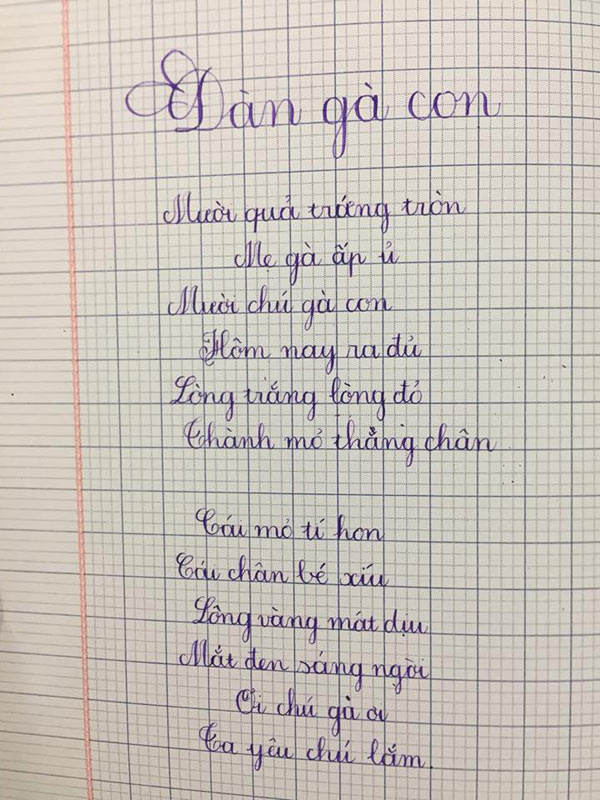 Đàn gà con
Mười quả trứng tròn
Mẹ gà ấp ủ
Mười chú gà con
Hôm nay ra đủ
Lòng trắng lòng đỏ
Thành mỏ thằng chân
Cái mỏ tí hon
Cái chân bé xíu
Lông vàng mát dịu
Mắt đen sáng ngời
Ơi chú gà ơi
Ta yêu chú lắm.